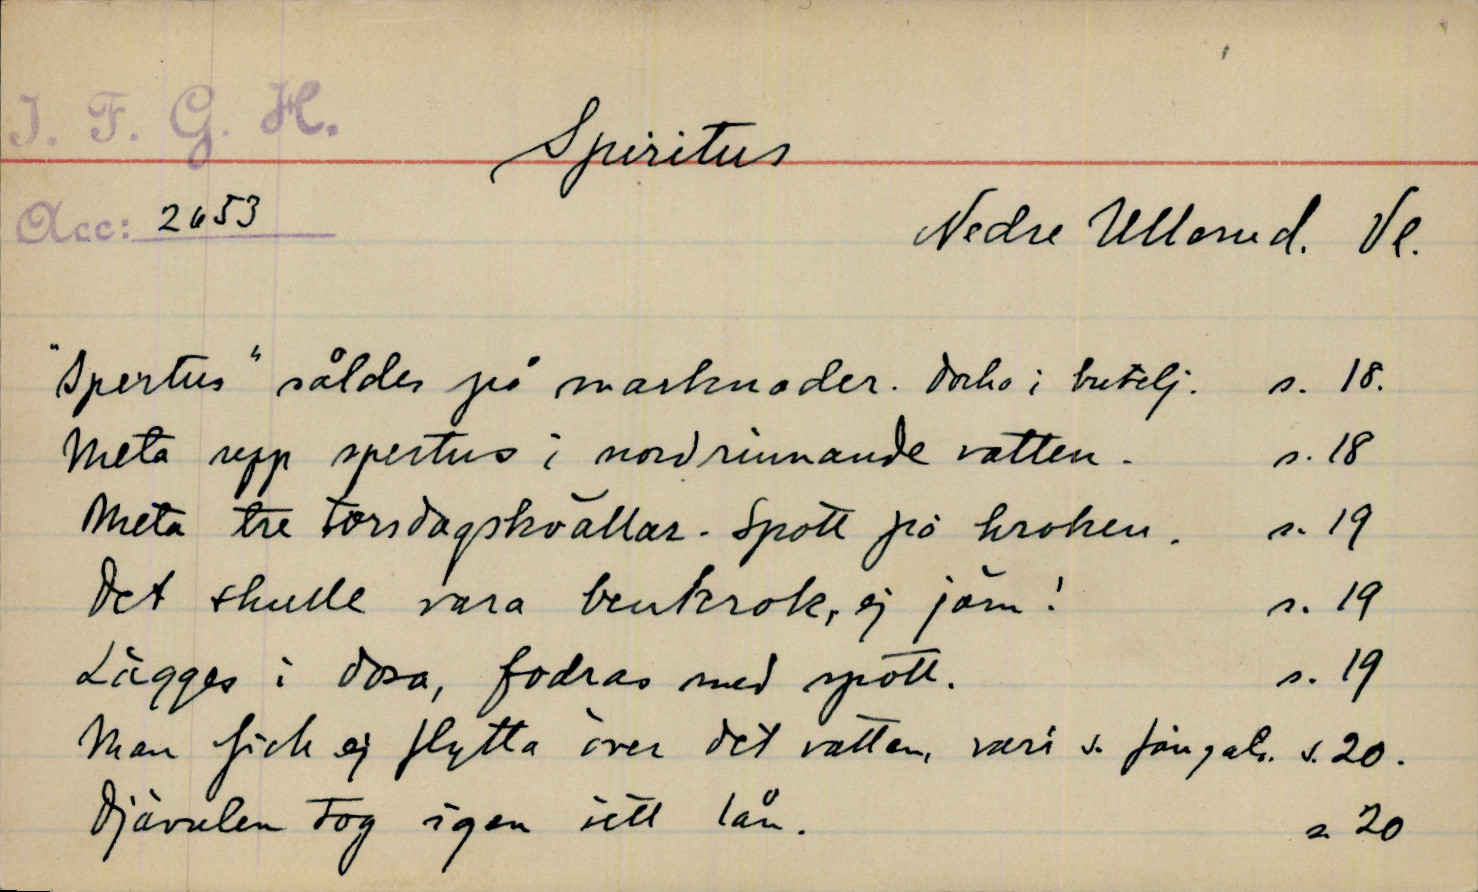 I. F. G. H.
Spiritus
Acc: 2653
Nedre Ullerud. Vl.
"Spertus" såldes på marknader. i butelj. s. 18.
Meta upp spertus i nordrinnande vatten. s. 18
Meta tre torsdagskvällar. Spott på kroken. s. 19
Det skulle vara benkrok, ej järn! s. 19
Lägges i dosa, fodras med spott. s. 19
Man fick ej flytta över det vatten, vari s. fångats. s. 20.
Djävulen tog igen sitt lån. s. 20